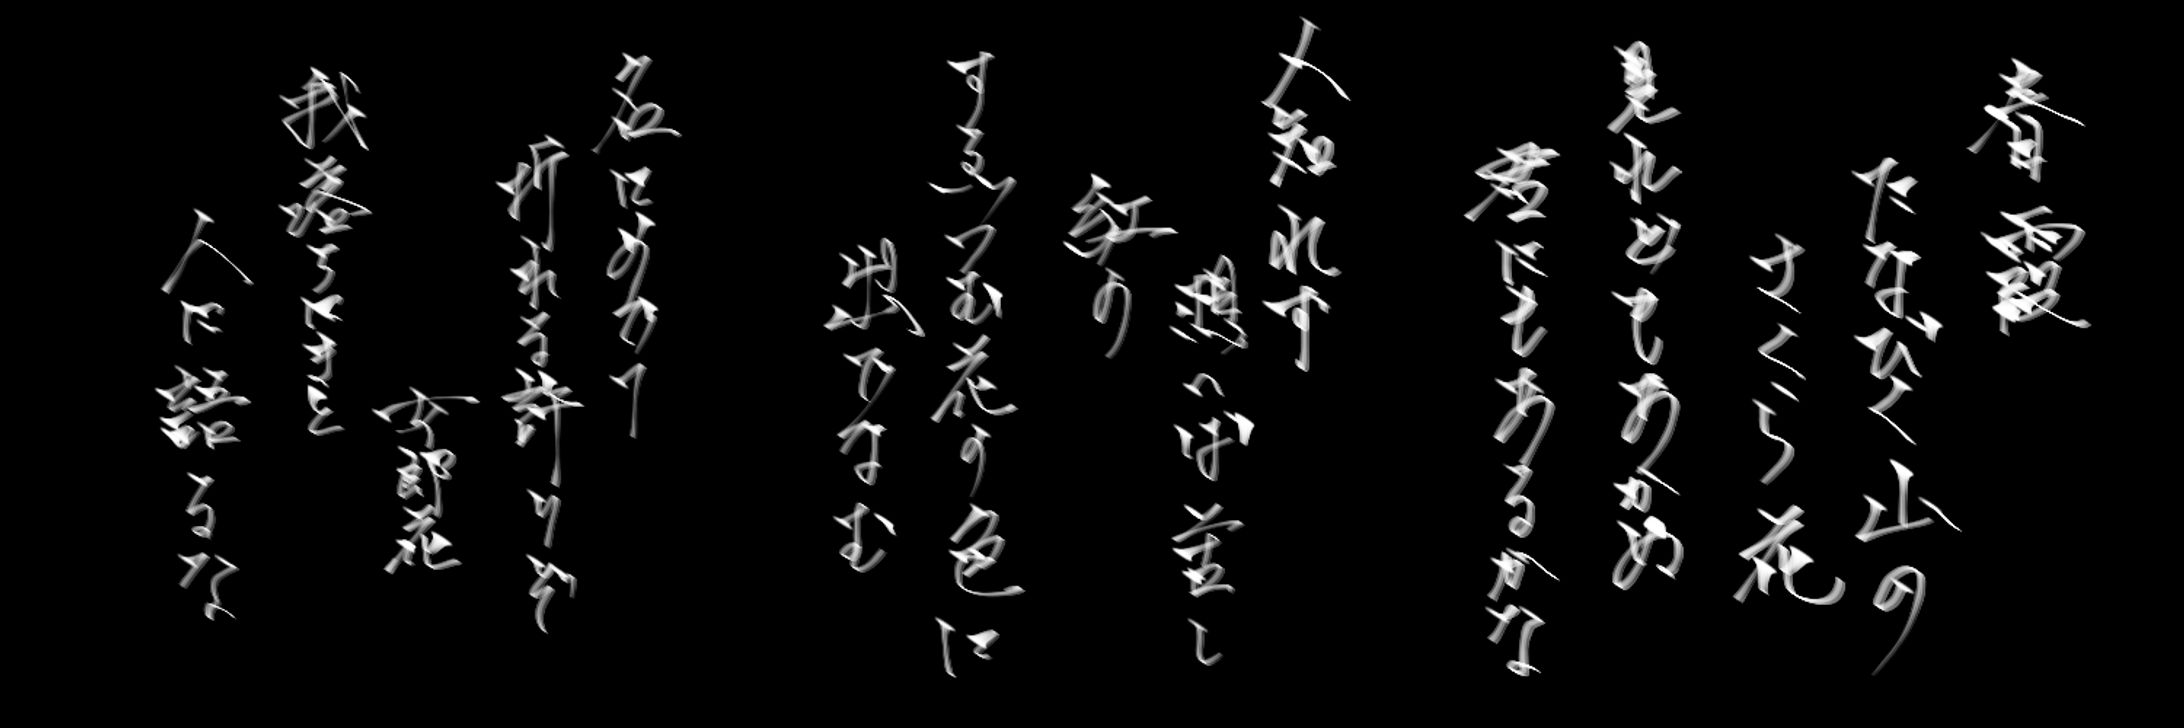 春霞
たなびく山の
さくら花
見れどもあかぬ
君にもあるかな
人知れす
思へば苦し
紅の
すゑつむ花の色に
出でなむ
名にめでて
折れる許りぞ
女郎花
我落ちにきと
人に語るな